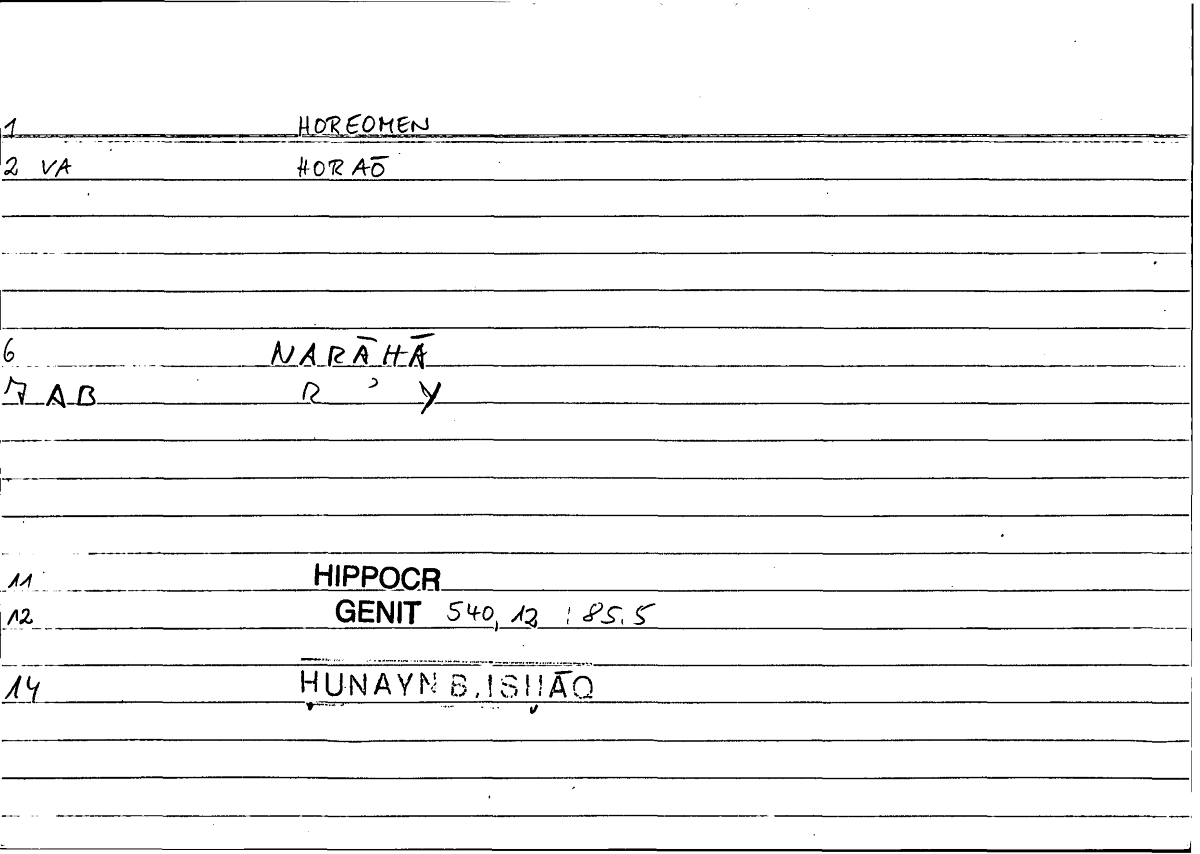 1 HOREOMEN
2 VA HORAŌ
6 NARĀHĀ
7 AB R ʾ Y
11 HIPPOCR
12 GENIT 540, 12 : 85.5
14 ḤUNAYN B. ISḤĀQ